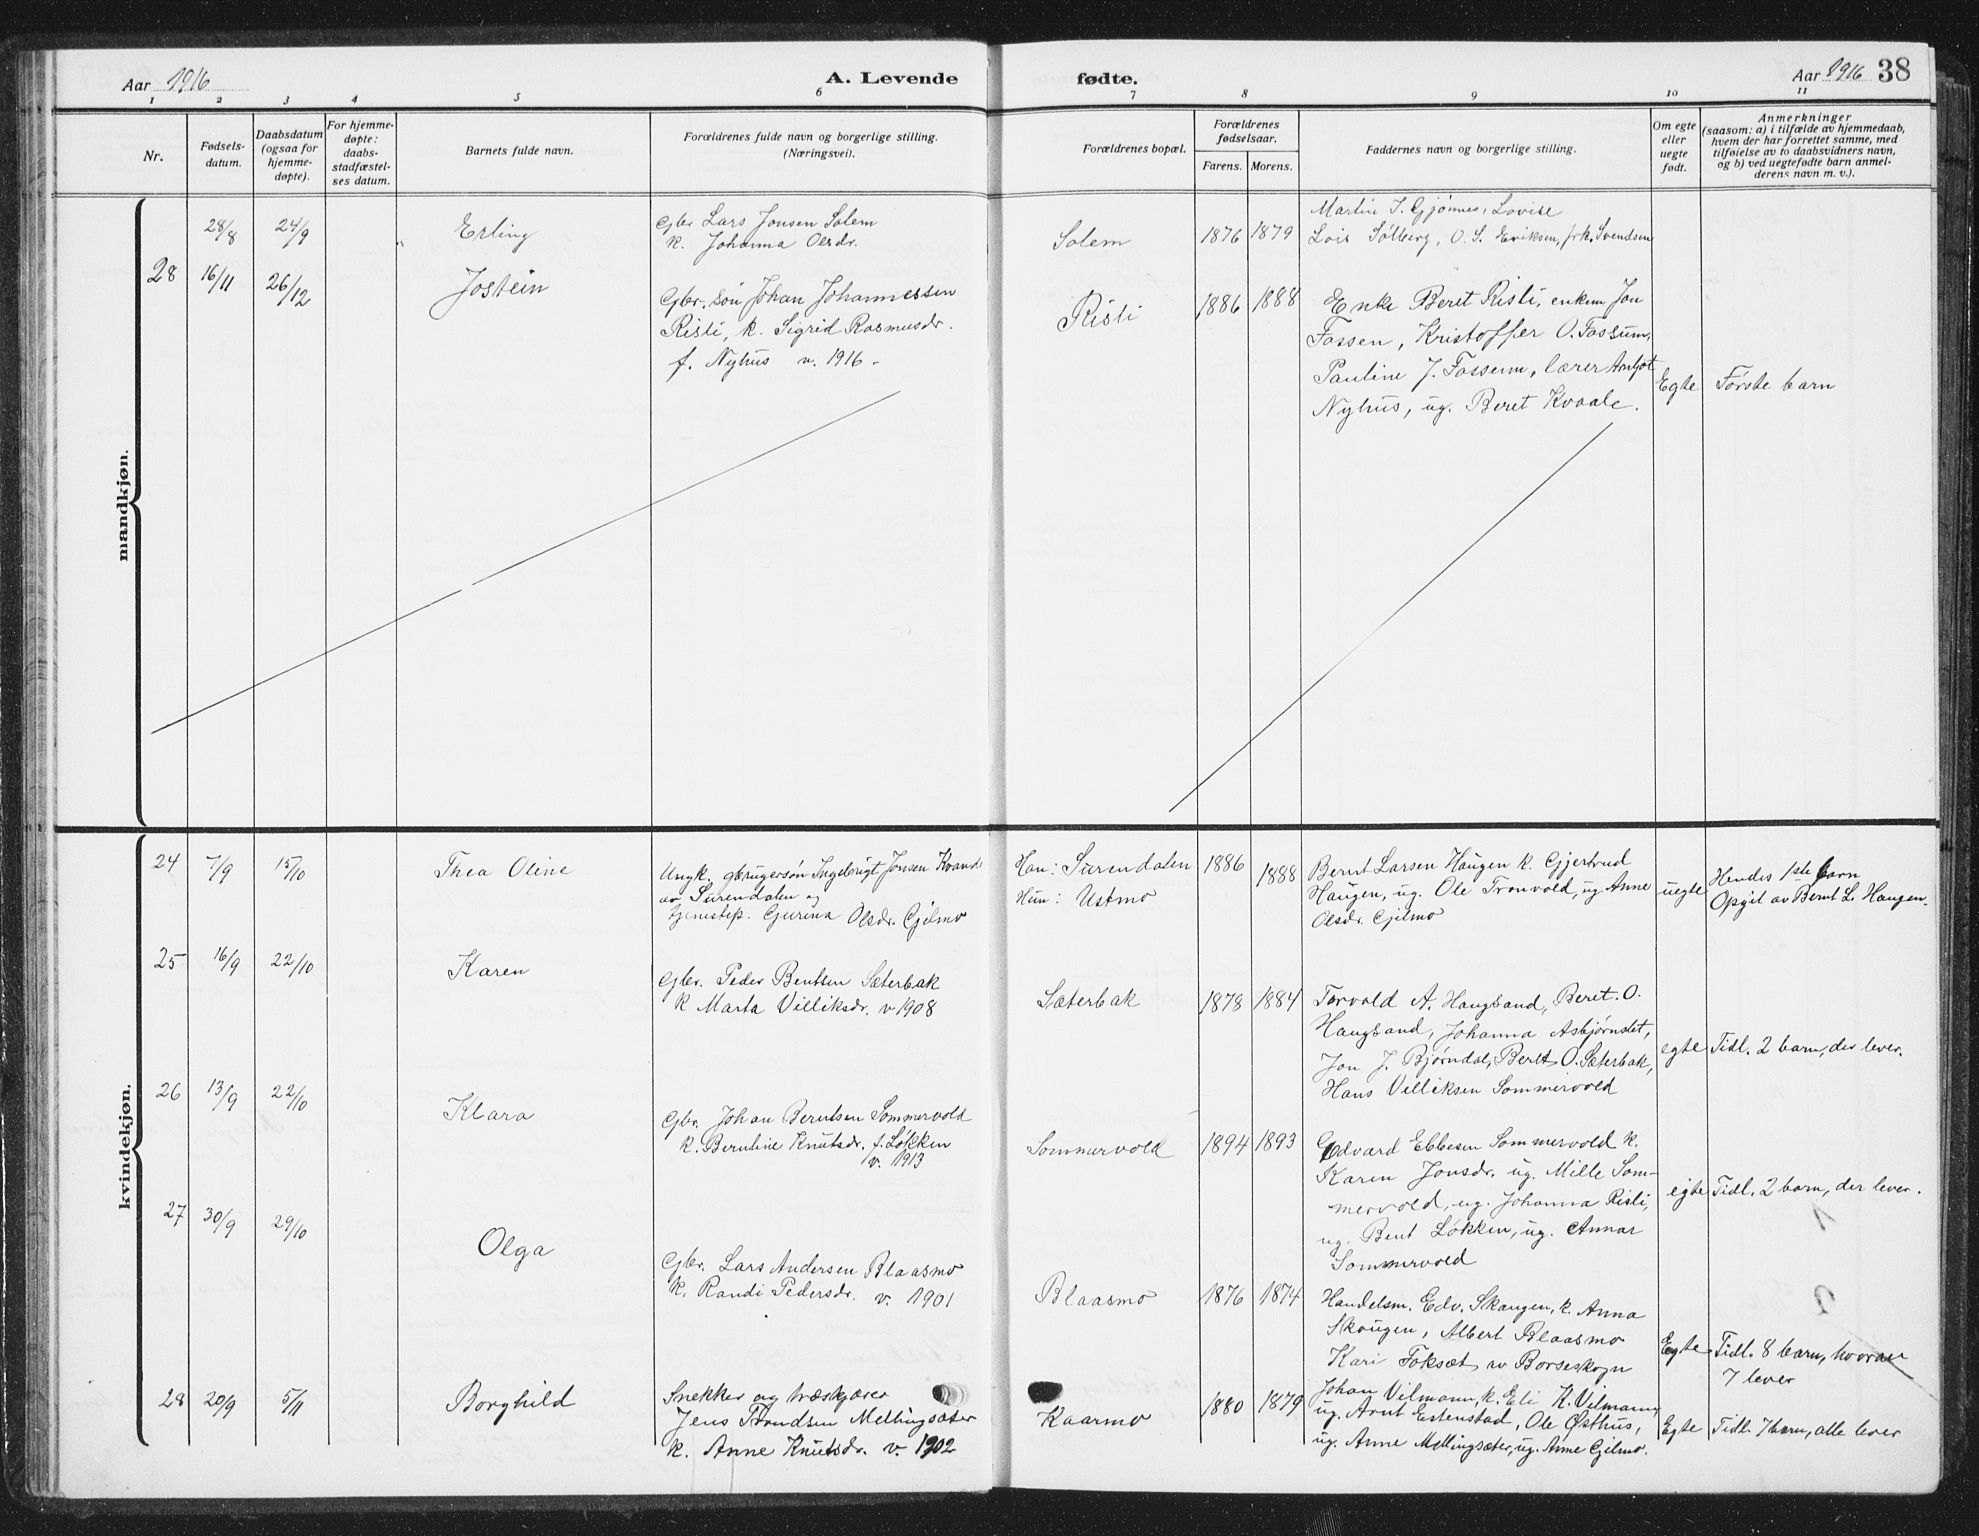 Aar 1916
A. Levende
fødte.
Aar 1916 38
1 2 3 4 5 6 7 8 9 10 11
Nr.
Fødsels-
datum.
Daabsdatum
(ogsaa for
hjemme-
døpte).
For hjemme-
døpte:
daabs-
stadfæstel-
ses datum.
Barnets fulde navn.
Forældrenes fulde navn og borgerlige stilling.
(Næringsvei).
Forældrenes bopæl.
Forældrenes
fødselsaar.
Farens. Morens.
Faddernes navn og borgerlige stilling.
Om egte
eller
uegte
født.
Anmerkninger
(saasom: a) i tilfælde av hjemmedaab,
hvem der har forrettet samme, med
tilføielse av to daabsvidners navn,
og b) ved uegtefødte barn anmel-
derens navn m. v.).
mandkjøn.
28/8 24/9 Erling
Gbr Lars Jonsen Solem
k. Johanna Olsdr.
Solem 1876 1879
Martin J. Gjönnes, Lovise
Lois Sölberg, O. S. Eriksen, frk. Svendsen
28 16/11 26/12 Jostein
Gbr. sön Johan Johannessen
Risli, k. Sigrid Rasmusdr.
f. Nyhus v. 1916 -
Risli 1886 1888
Enke Beret Risli, enkem. Jon
Fossen, Kristoffer O. Fossum,
Pauline J. Fossem, lærer Arnljot
Nyhus, ug. Beret Kvaale.
Egte Første barn
kvindekjøn.
24 7/9 15/10 Thea Oline
Ungk. gbrugersön Ingebrigt Jonsen Kvande
av Surendalen og
tjenestep. Gjurina Olsdr. Gjelmo
Han: Surendalen
Hun: Ustmo
1886 1888
Bernt Larsen Haugen k. Gjertrud
Haugen, ug. Ole Tronvold, ug Anne
Olsdr. Gjilmo
uegte
Hendes 1ste barn
Opgit av Bernt L. Haugen.
25 16/9 22/10 Karen
Gbr. Peder Bentsen Sæterbak
k Marta Villiksdr. v 1908
Sæterbak 1878 1884
Torvald A. Haugsand, Beret. O.
Haugsand, Johanna Asbjørnslet,
Jon J. Bjørndal, Beret O. Sæterbak,
Hans Villiksen Sommervold
egte Tidl. 2 barn, der lever.
26 13/9 22/10 Klara
Gbr. Johan Berntsen Sommervold
k. Berntine Knutsdr. f. Løkken
v. 1913
Sommervold 1894 1893
Edvard Ebbesen Sommervold k.
Karen Jonsdr. ug. Mille Som-
mervold, ug. Johanna Risli,
ug. Bent Løkken, ug. Annar
Sommervold
egte Tidl. 2 barn, der lever.
27 30/9 29/10 Olga
Gbr. Lars Andersen Blaasmo
k. Randi Pedersdr. v. 1901
Blaasmo 1876 1874
Handelsm. Edv. Skaugen, k. Anna
Skougen, Albert Blaasmo
Kari Foksæt av Børseskogn
Egte Tidl. 8 barn, hvorav
7 lever
28 20/9 5/11 Borghild
Snekker og træskjærer
Jens Trondsen Mellingsæter
k. Anne Knutsdr. v. 1902
Kaarmo 1880 1879
Johan Vilmann, k. Eli K. Vilmann
ug. Arnt Estenstad, Ole Østhus,
ug. Anne Mellingsæter, ug. Anne Gjilmo.
Egte Tidl. 7 barn, alle lever